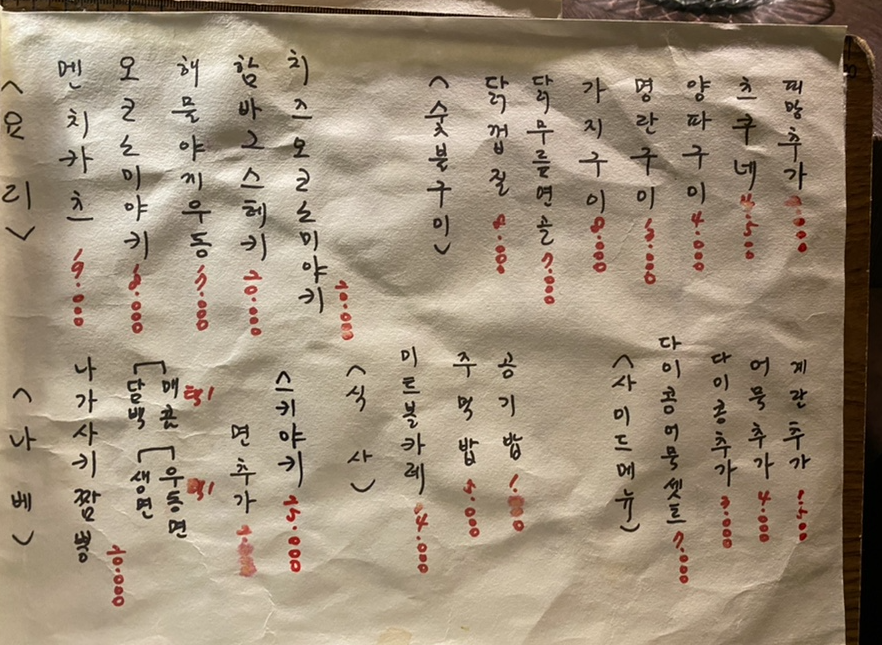 <요리>
멘치카츠 19.000
오코노미야키 18.000
해물야끼우동 17.000
함바그스테키 20.000
치즈오코노미야키 20.000
<숯불구이>
닭껍질 8.000
닭무릎연골 7.000
가지구이 8.000
명란구이 13.000
양파구이 4.000
츠쿠네 4.500
피망추가
<나베>
나가사키짬뽕 20.000
담백 매콤 택1
생면 우동면 택1
스키야키 25.000
면추가 2.000
<식사>
미트볼카레 14.000
주먹밥 5.000
공기밥 1.000
<사이드메뉴>
다이콩어묵셋트 7.000
다이콩추가 3.000
어묵추가 4.000
계란추가 1.500